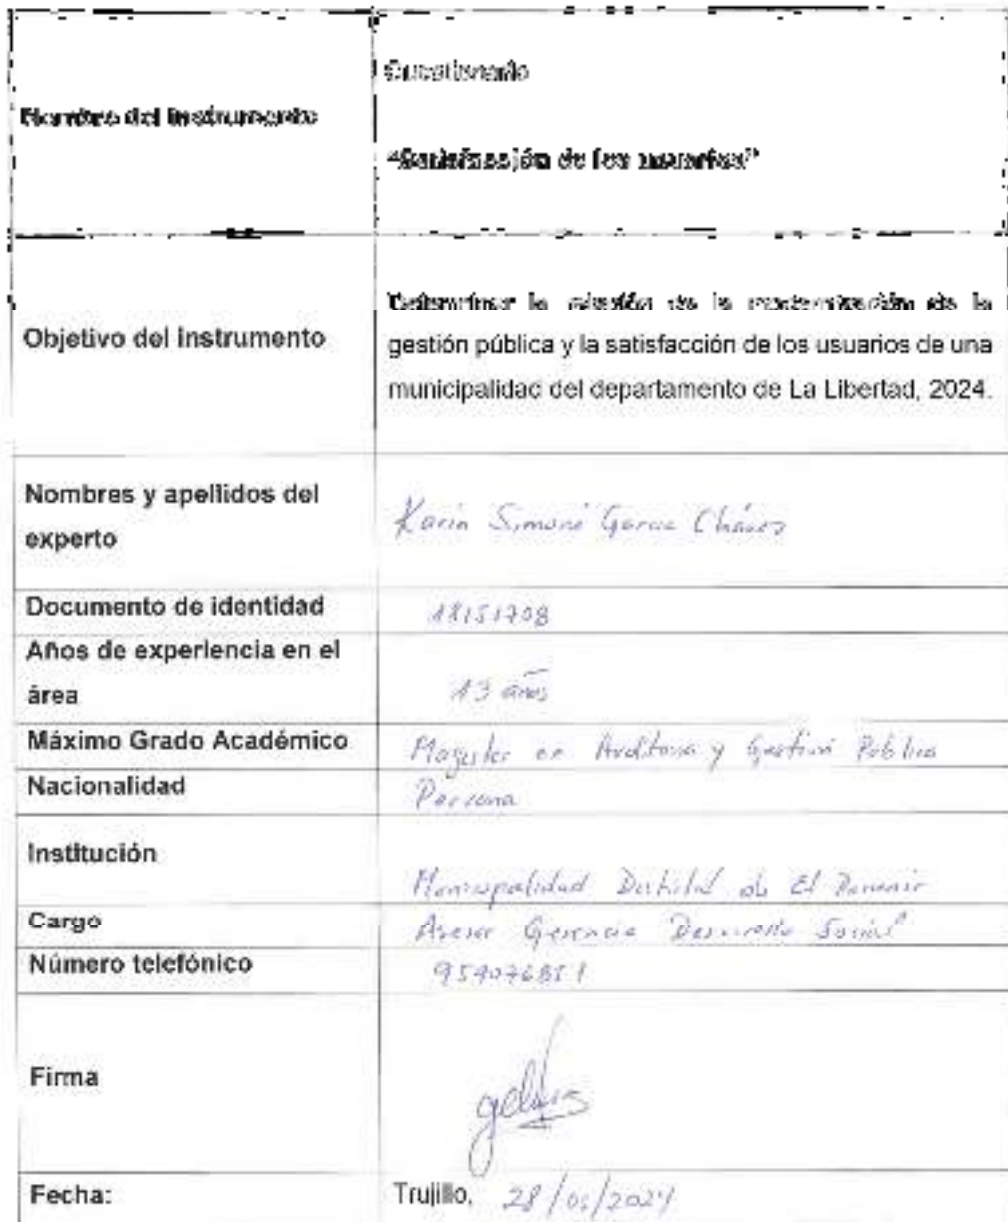 Nombre del Instrumento
Cuestionario
“Satisfacción de los usuarios”
Objetivo del Instrumento
Determinar la relación de la modernización de la
gestión pública y la satisfacción de los usuarios de una
municipalidad del departamento de La Libertad, 2024.
Nombres y apellidos del
experto
Karin Simoné Garcia Chávez
Documento de identidad
18151708
Años de experiencia en el
área
13 años
Máximo Grado Académico
Magister en Auditoria y Gestión Pública
Nacionalidad
Peruana
Institución
Municipalidad Distrital de El Porvenir
Cargo
Asesor Gerencia Desarrollo Social
Número telefónico
Firma
Fecha:
Trujillo, 28/ /2024